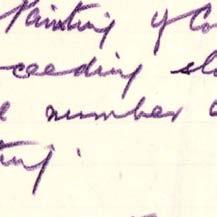 Painting of Co
ceeding sl
number
ting.